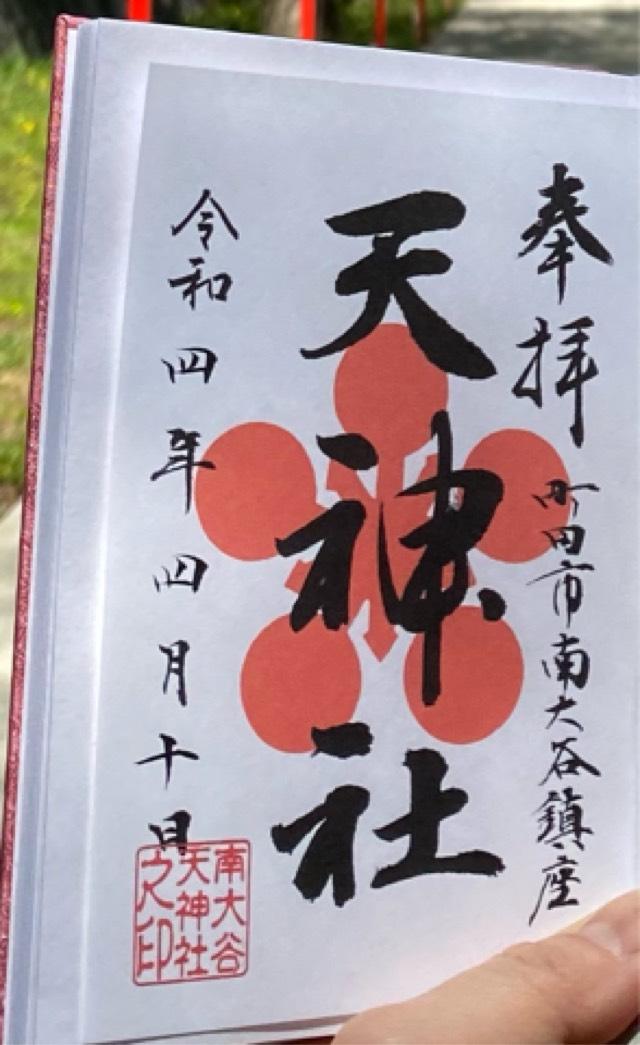 奉拝
町田市南大谷鎮座
天神社
令和四年四月十日
南大谷
天神社
之印